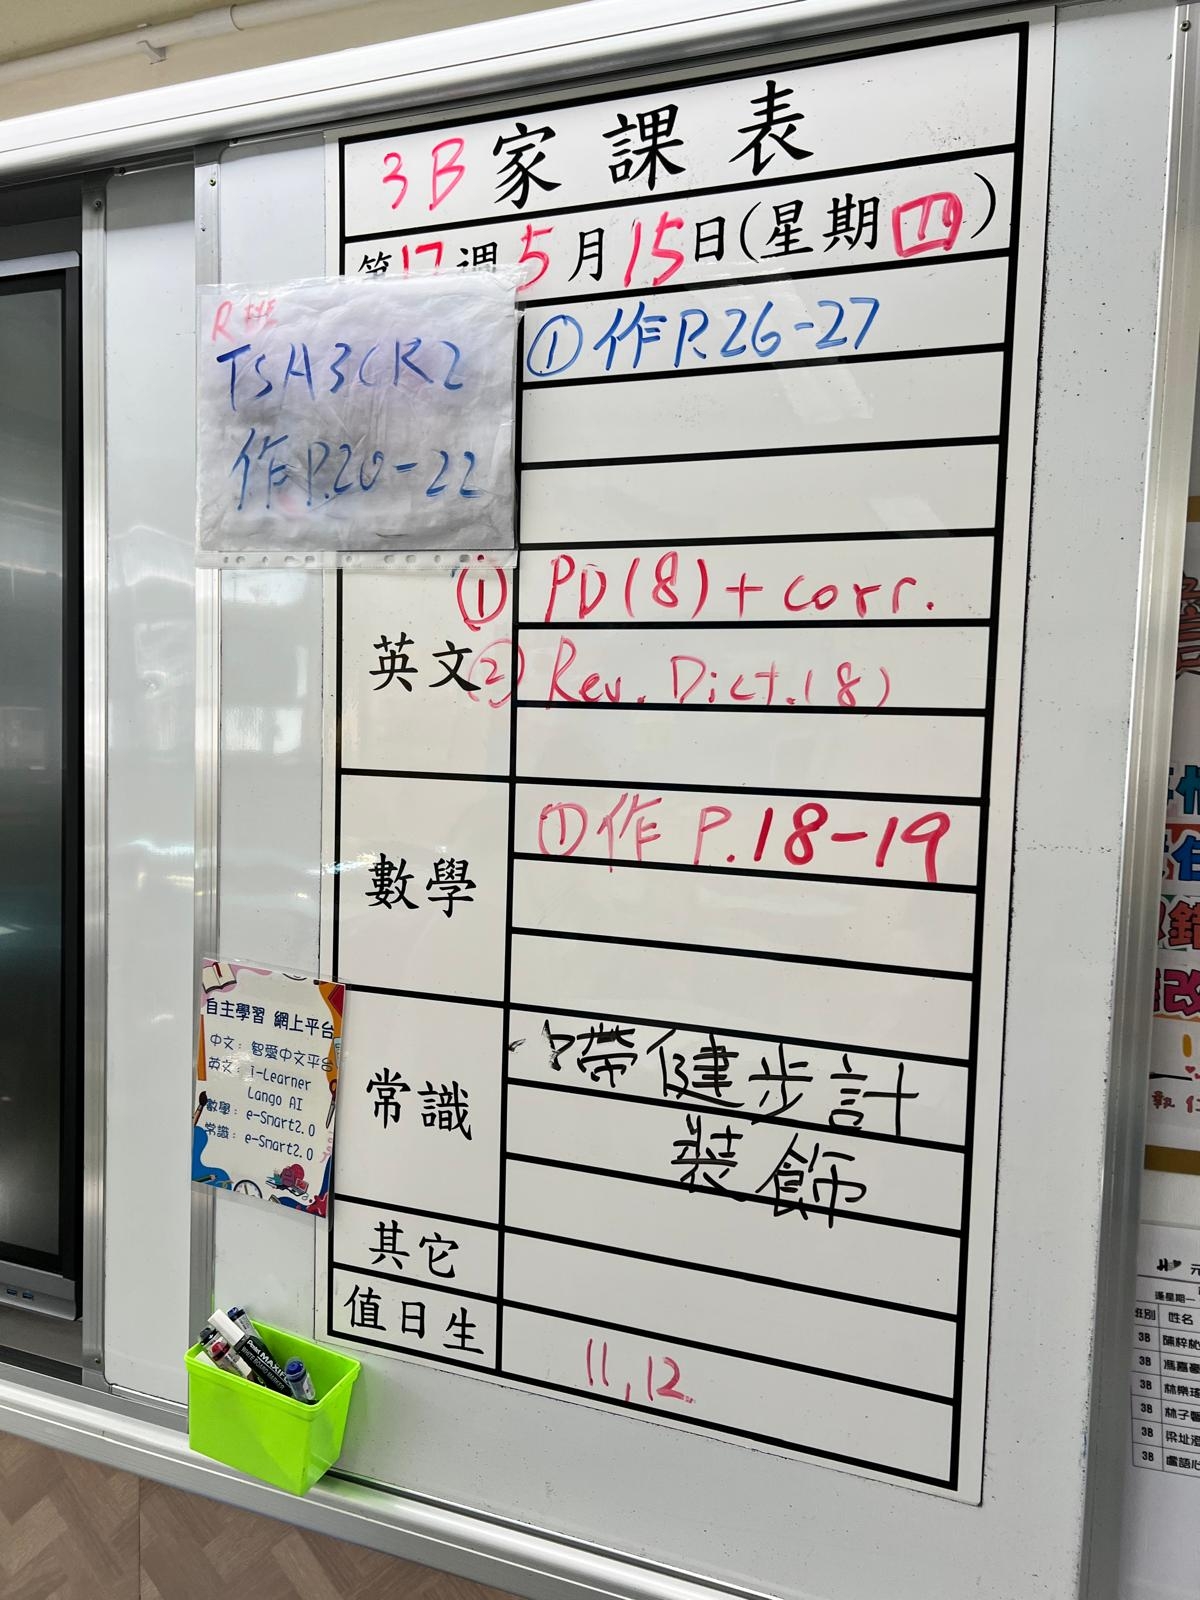 3B 家課表
第17週 5月15日(星期四)
R 班
TSA3CR2
作P.20-22
① 作P.26-27
英文
① PD(8)+corr.
② Rev. Dict.(8)
數學
① 作 P.18-19
常識
帶健步計
裝飾
其它
值日生
11,12
自主學習 網上平台
中文: 智愛中文平台
英文: i-Learner
Lango AI
數學: e-Smart2.0
常識: e-Smart2.0
Pentel MAXIFLO
WHITE BOARD MARKER
逢星期一
班別 姓名
3B
3B
3B 林樂
3B 林子
3B 梁址
3B 盧語心